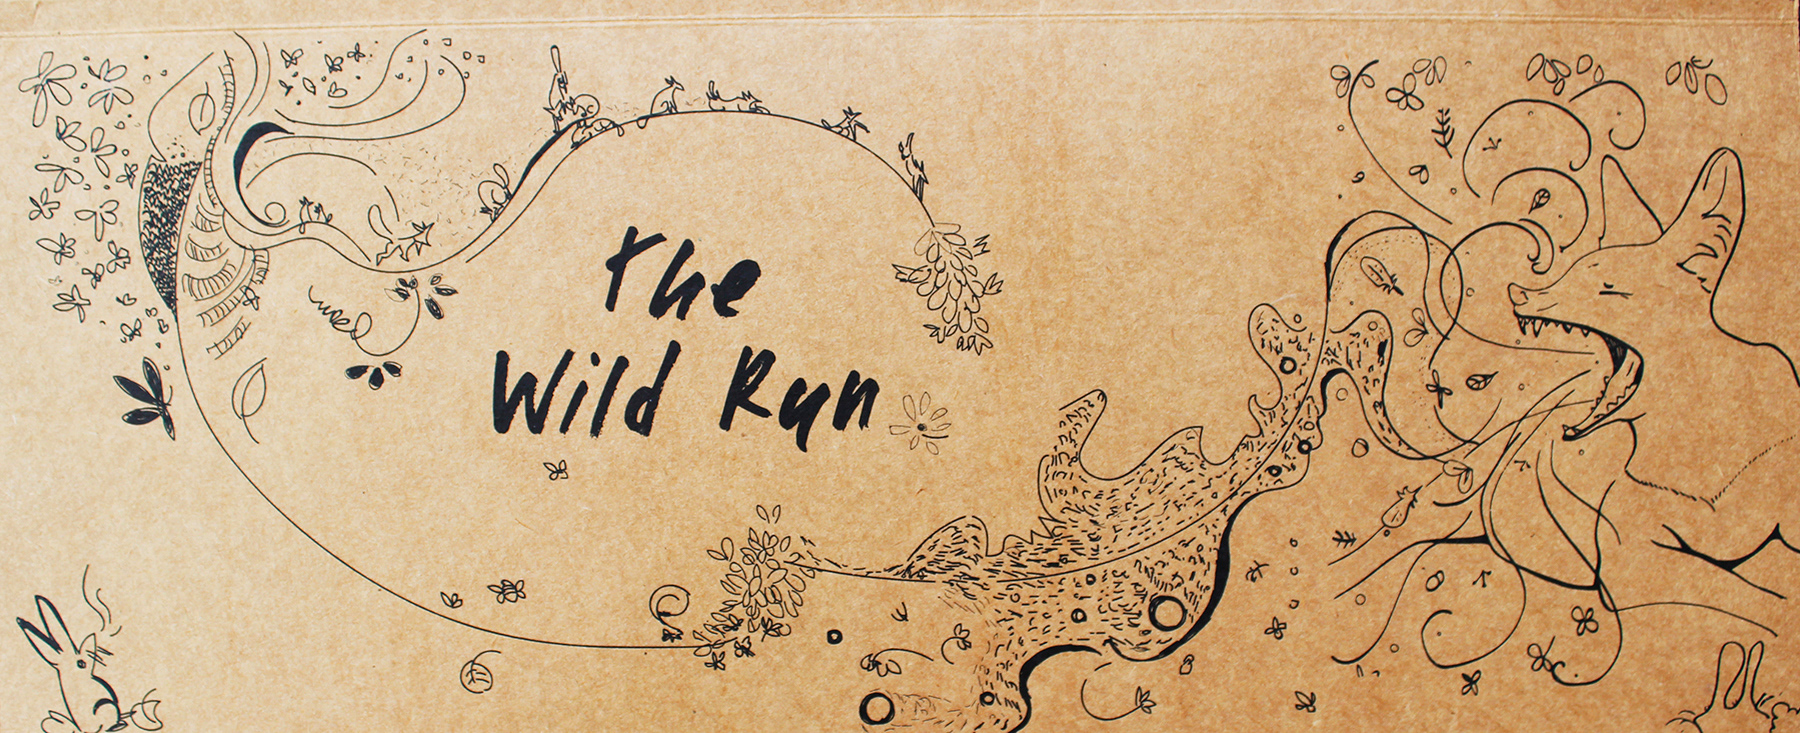 The
Wild Run